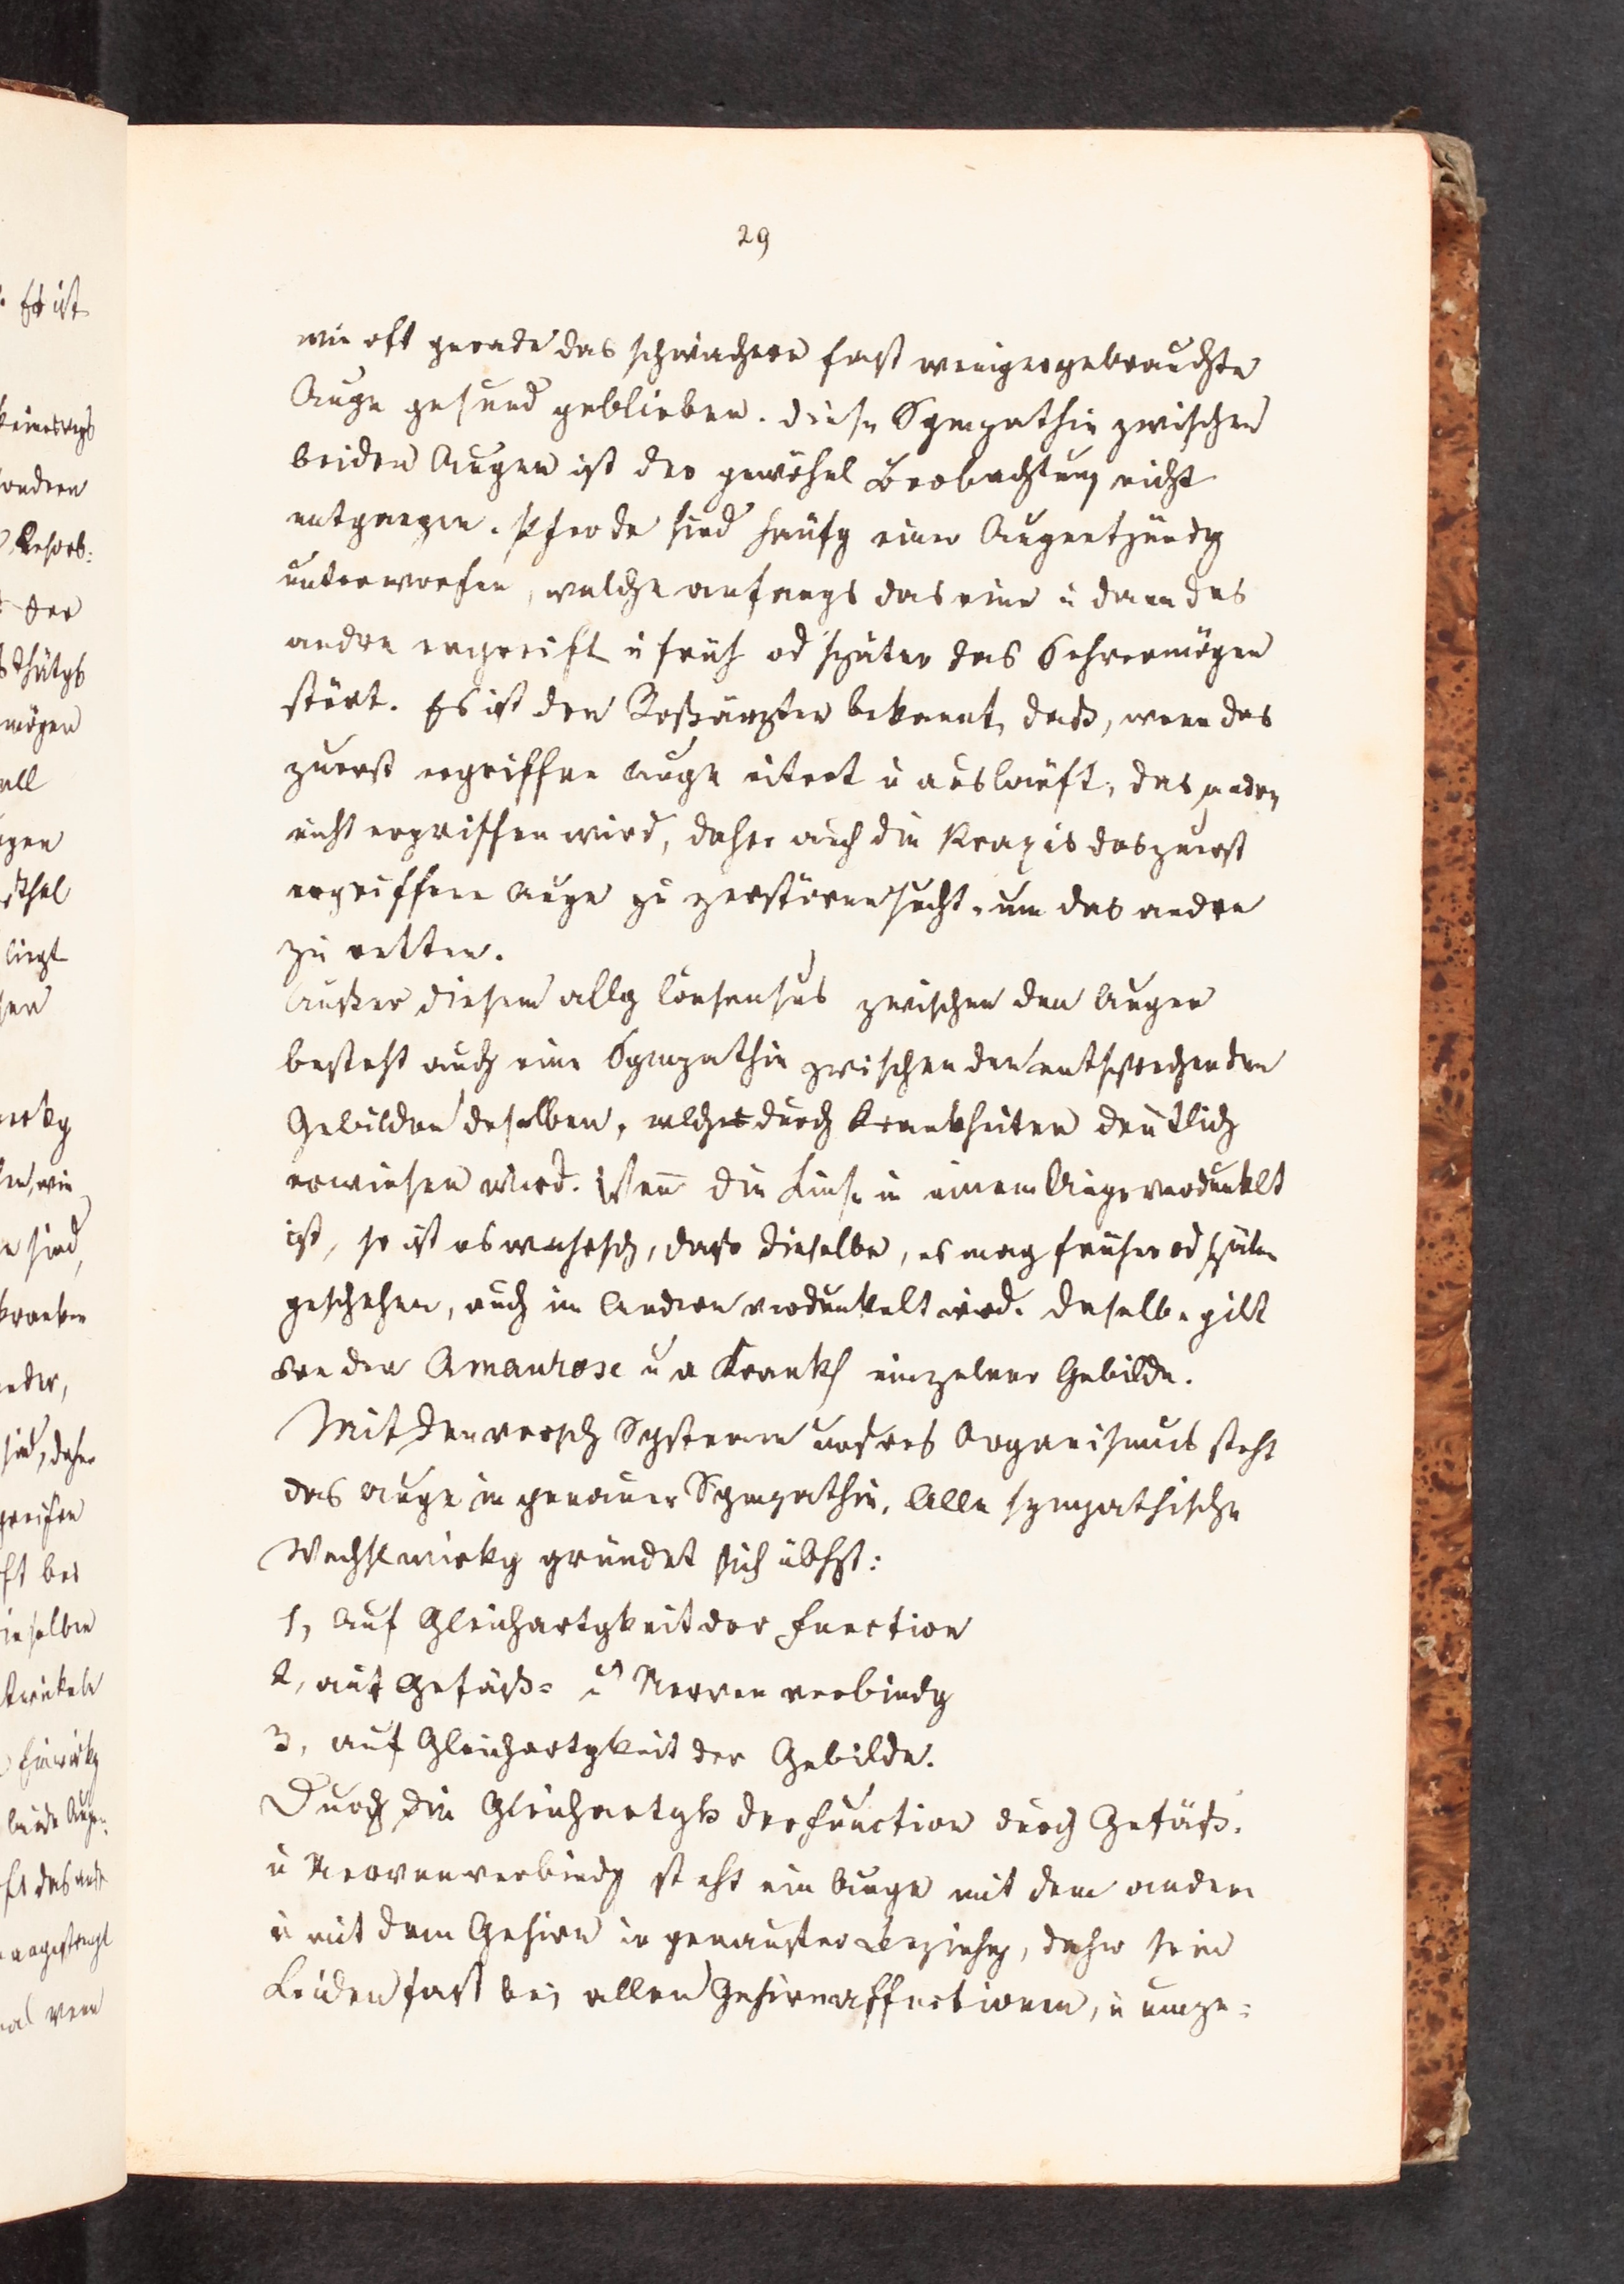 29
wie oft gerade das schwächere fast weniger gebrauchte
Auge gesund geblieben. Diese Sympathie zwischen
beiden Augen ist der gewöhnl Beobachtung nicht
entgangen. Pferde sind häufg einer Augenentzündg
unterworfen, welche anfangs das eine u dann das
andre ergreift u früh od später das Sehvermögen
stört. Es ist den Roßärzten bekannt, daß, wenn das
zuerst ergriffene Auge eitert u ausläuft, das andre
nicht ergriffen wird, daher auch die Praxis das zuerst
ergriffene Auge zu zerstören sucht, um das andre
zu retten.
Außer diesem allg Consensus zwischen den Augen
besteht auch eine Sympathie zwischen den entsprechenden
Gebilden deselben, welche durch Krankheiten deutlich
erwiesen wird. Wenn die Linse in einem Auge verdunkelt
ist, so ist es wahrsch, dass dieselbe, es mag früher od später
geschehen, auch im Andren verdunkelt wird. Daselbe gilt
von der Amaurose u a Krankh einzelner Gebilde.
Mit den versch Systemen unsres Organismus steht
das Auge in genauer Sympathie. Alle sympathische
Wechselwirkg gründet sich übhpt:
1, Auf Gleichartgkeit der Function
2, auf Gefäß= u Nerven verbindg
3, auf Gleichartgkeit der Gebilde.
Durch die Gleichartgk der Function durch Gefäß-
u Nervenverbindg steht ein Auge mit dem andern
u mit dem Gehirn in genauster Beziehg, daher sein
Leiden fast bei allen Gehirnaffectionen, u umge=